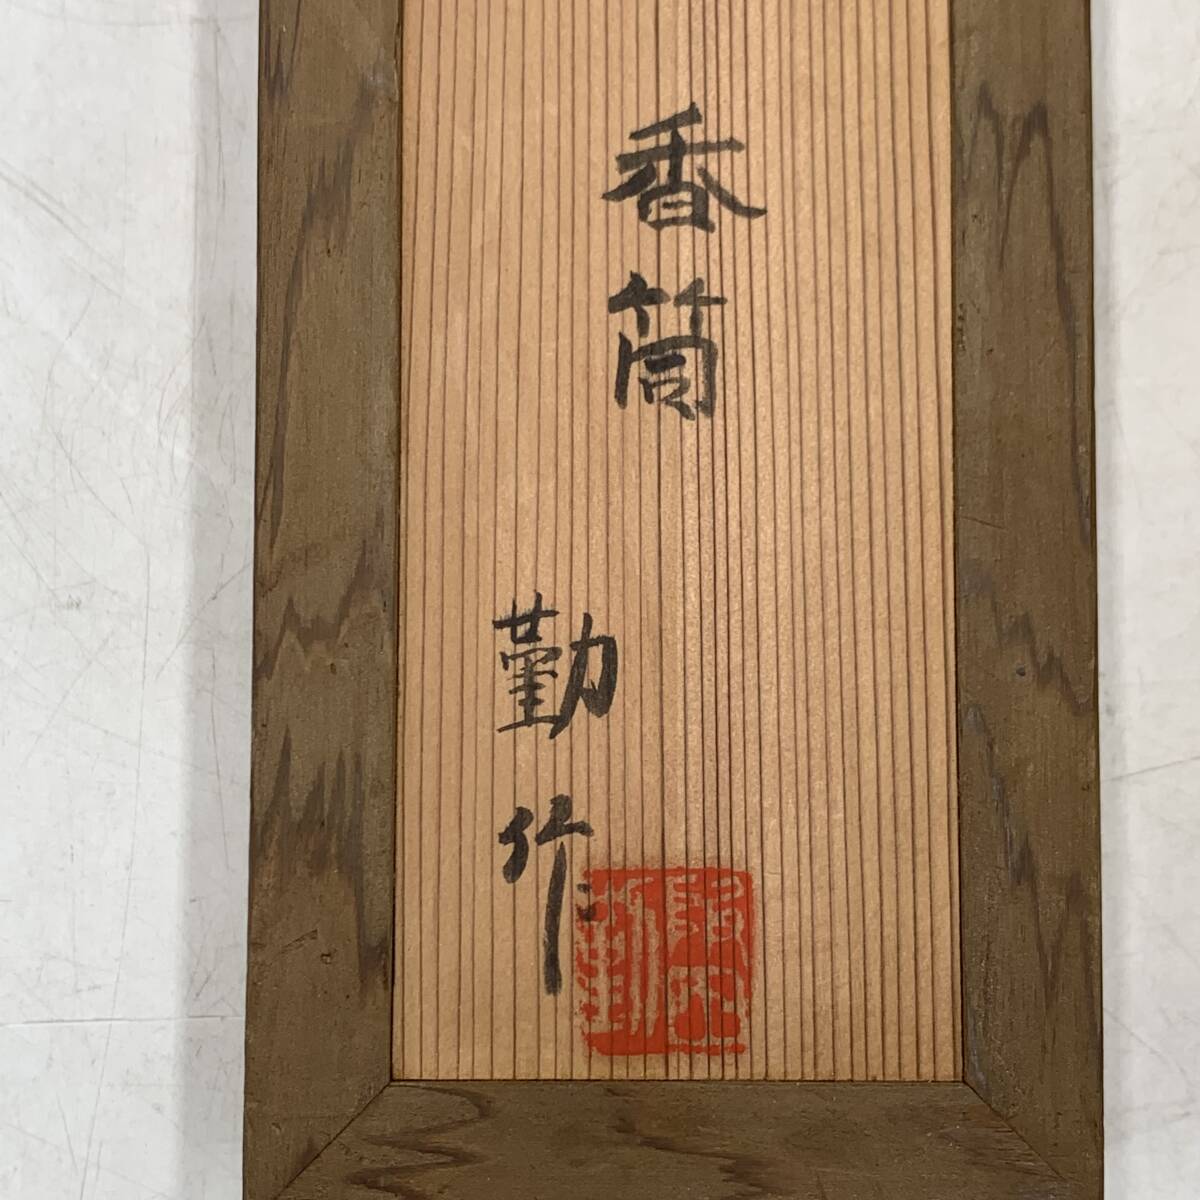 香筒
勤作